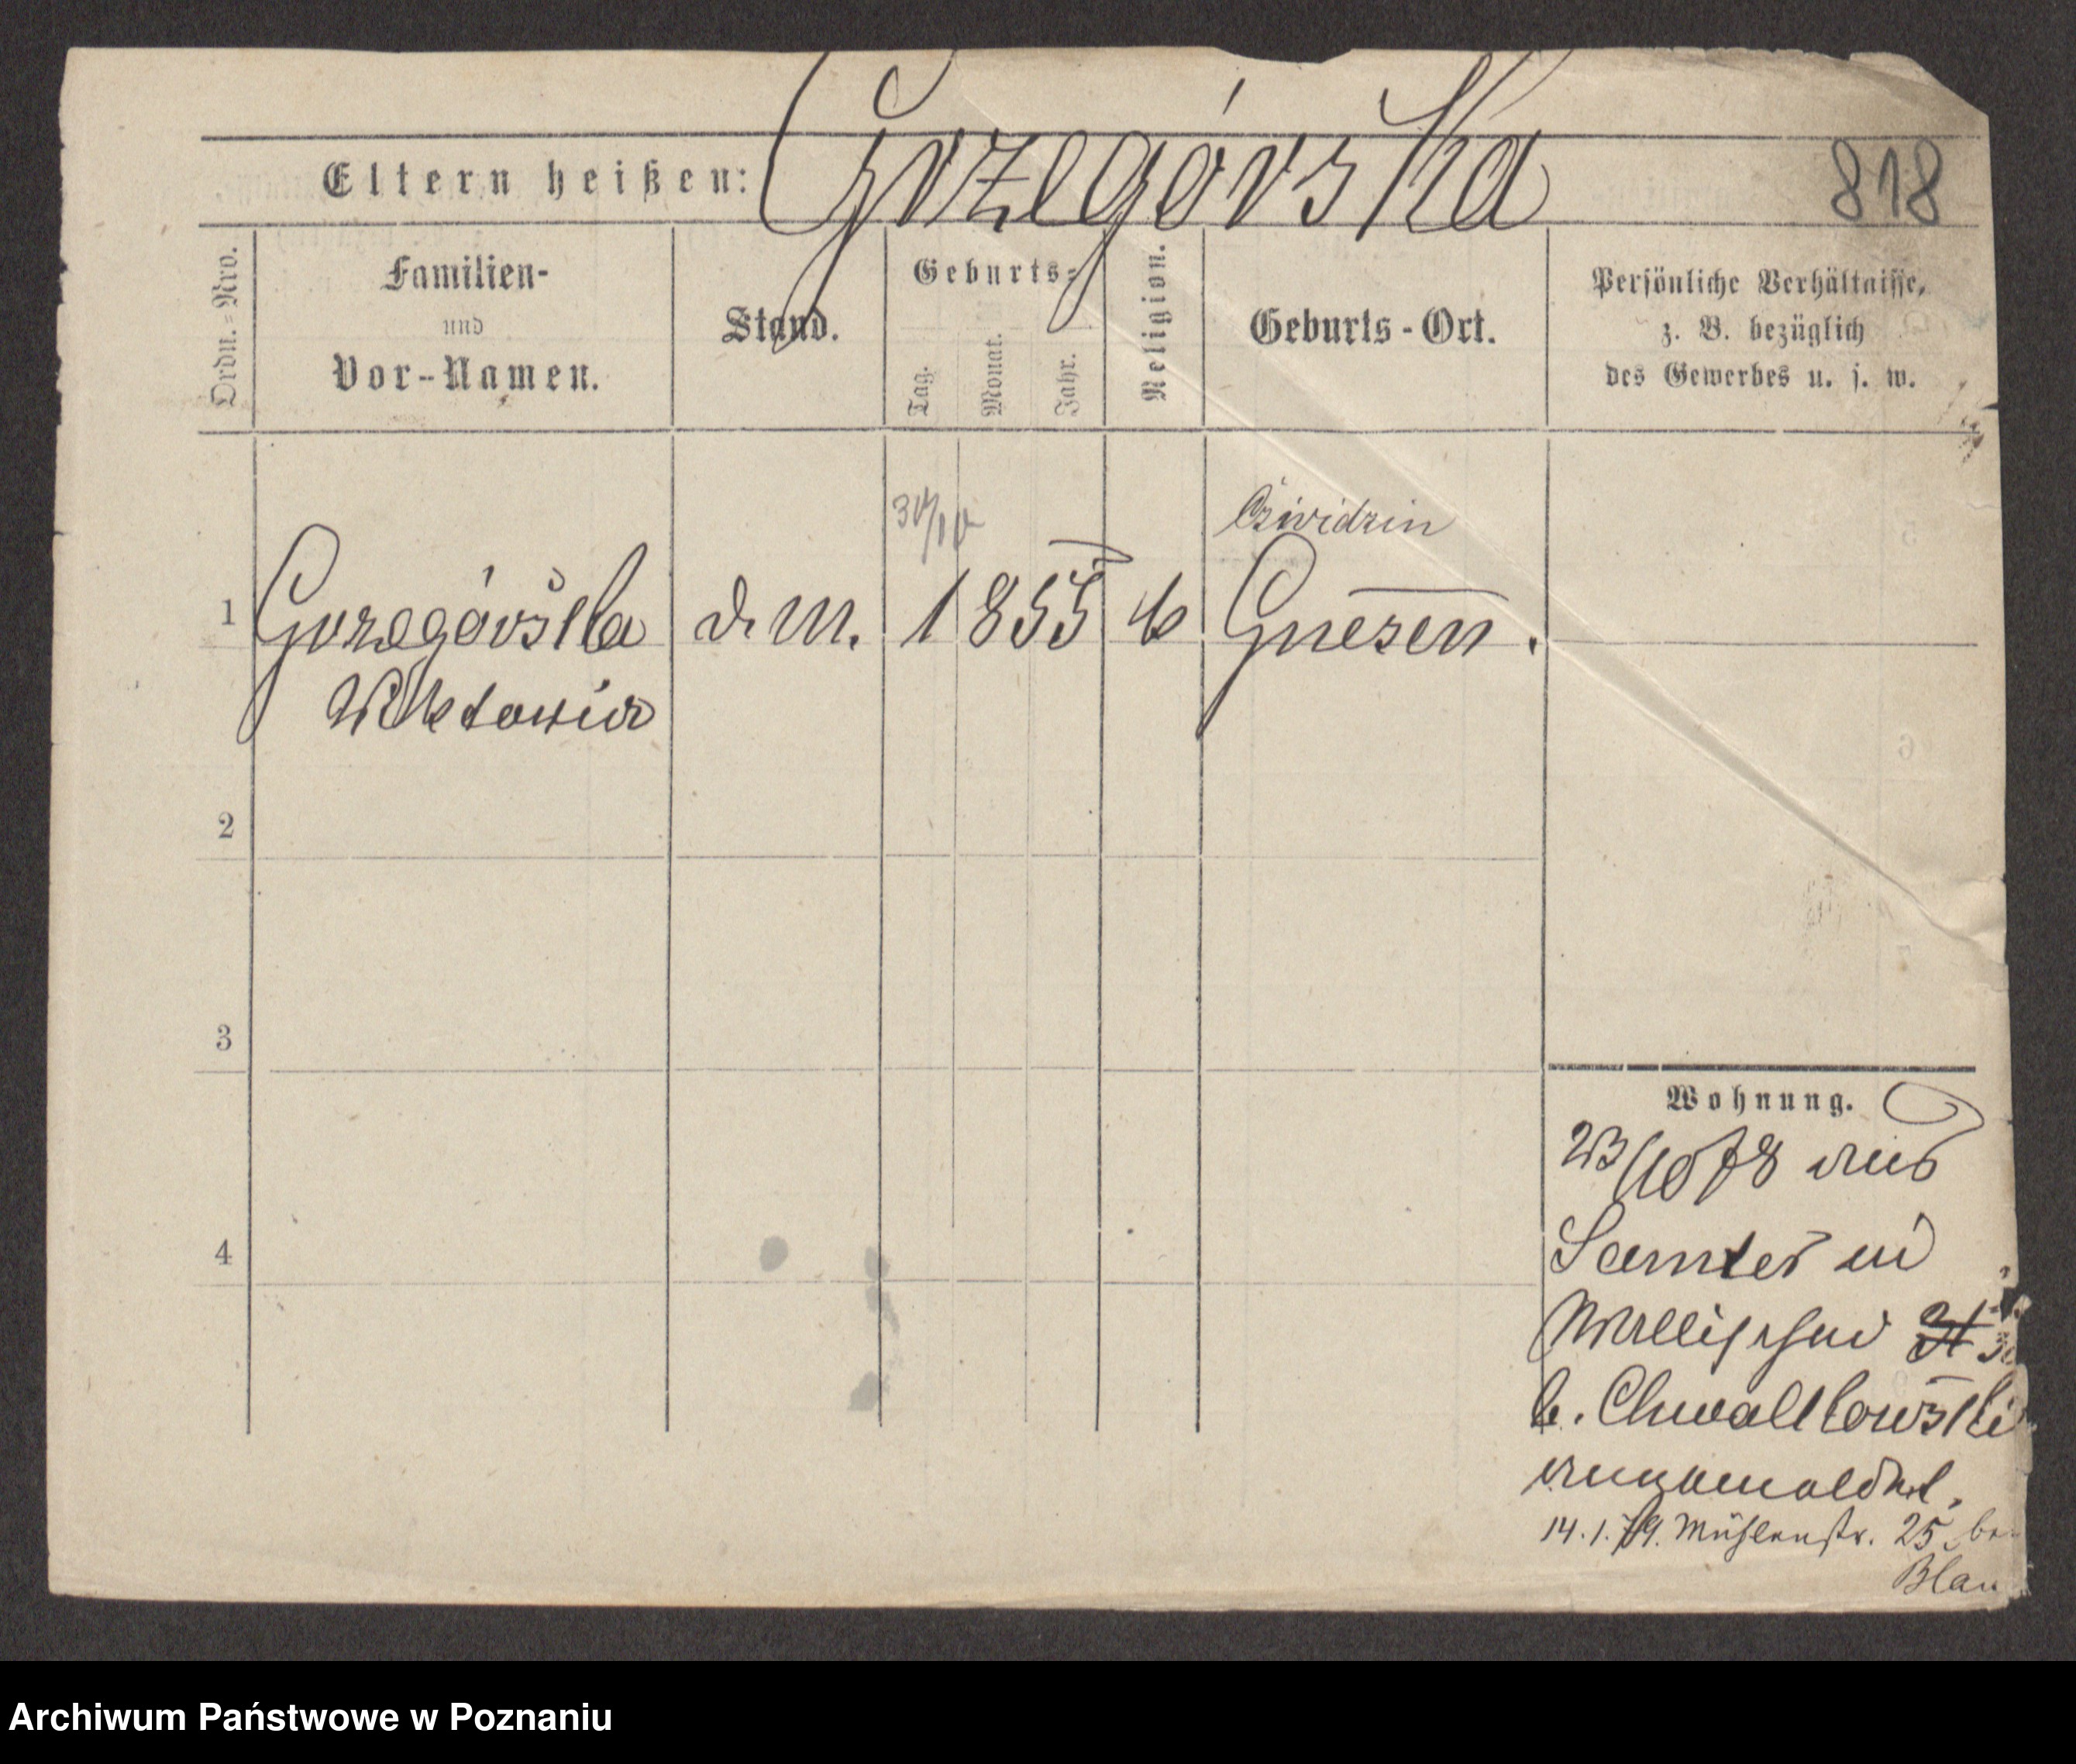 Eltern heißen: Gozegóvska 818
Ordn.-Nro.
Familien-
und
Vor-Namen.
Stand.
Geburts-
Tag.
Monat.
Jahr.
Religion.
Geburts-Ort.
Persönliche Verhältnisse,
z. B. bezüglich
des Gewerbes u. s. w.
30/10
1 Gozegóvska d. M. 1855 k Gnesen.
Wiktoria
2
3
4
Wohnung.
23/10 78 aus
Samter in
Wallischei
b. Chwalkowski
angemeldet.
14.1.79. Mühlenstr. 25 be
Blau
Archiwum Państwowe w Poznaniu